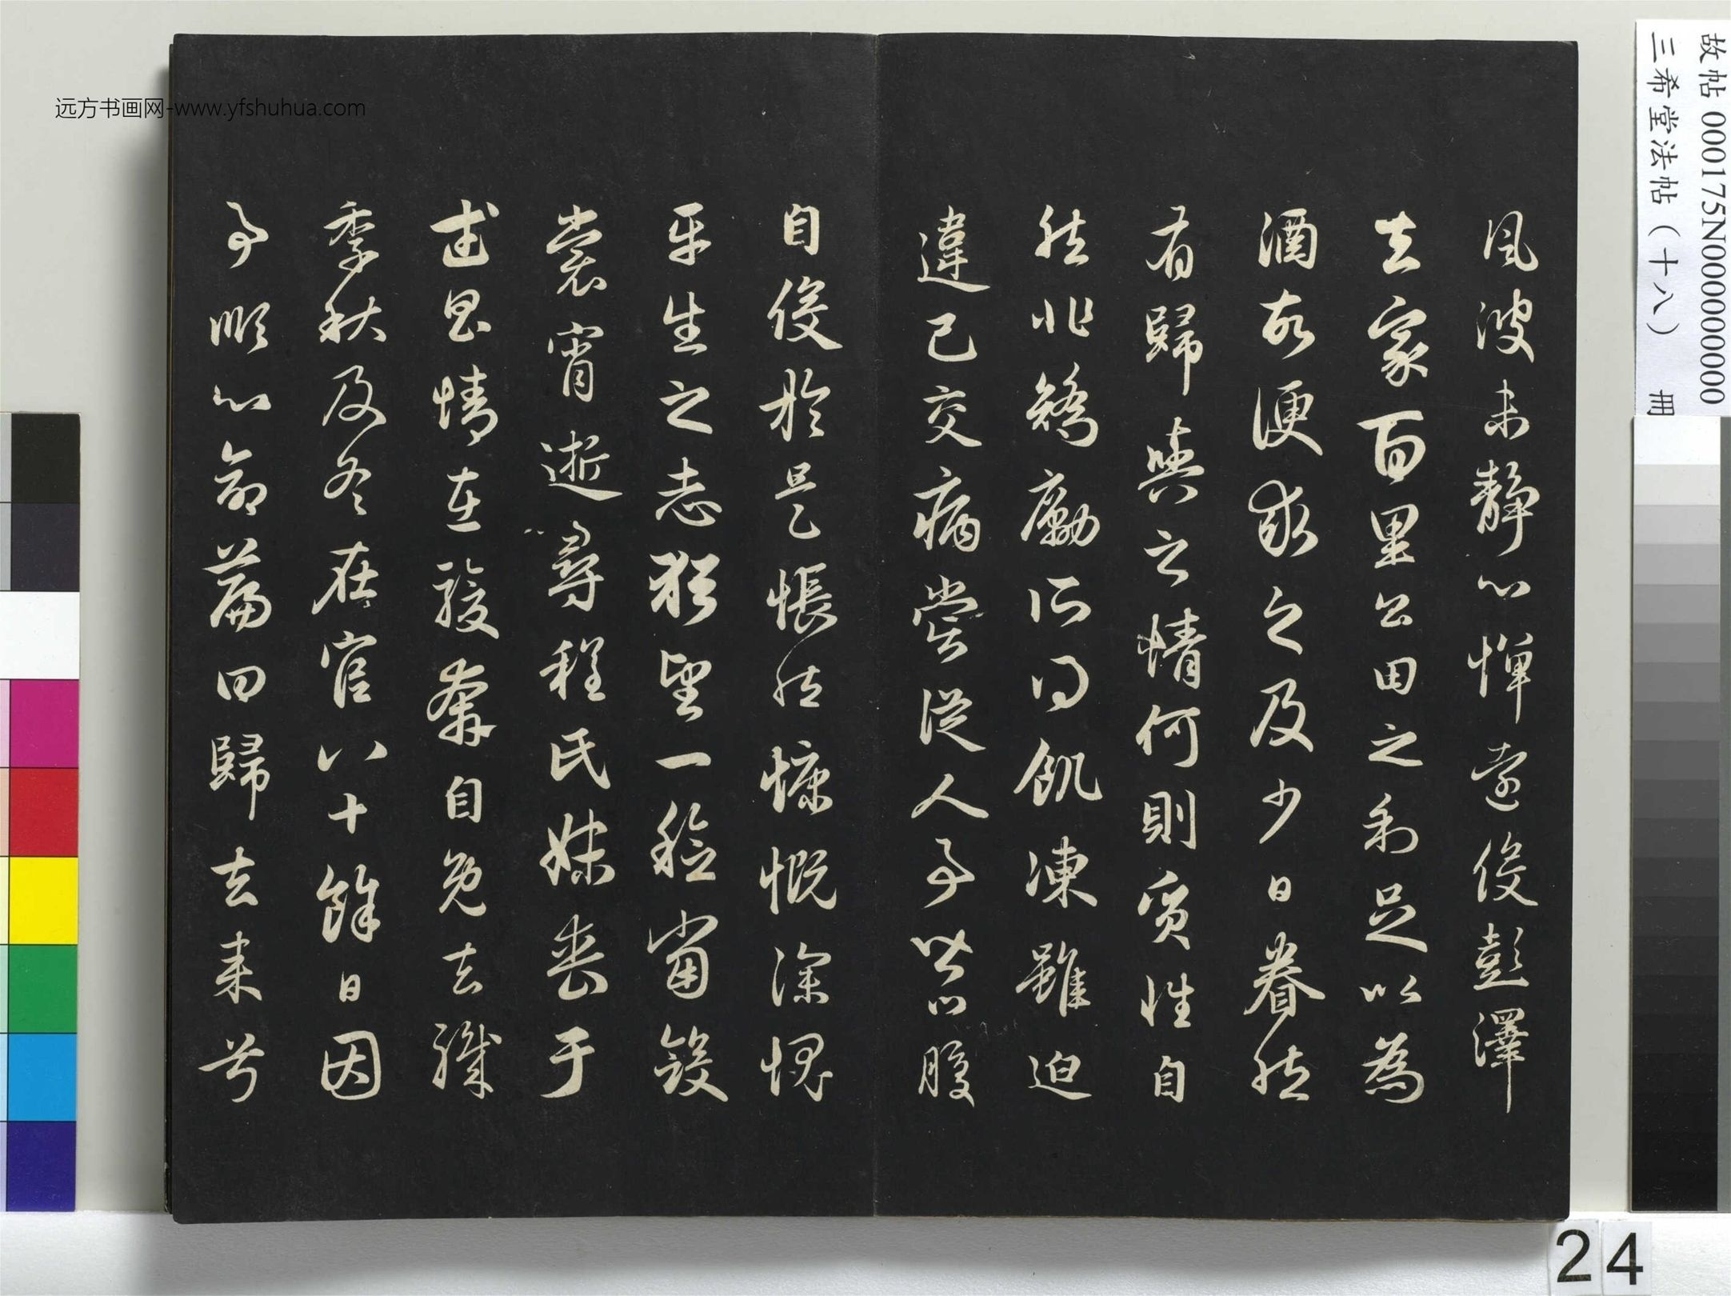 远方书画网-www.yfshuhua.com
風波未静心憚遠役彭澤
去家百里公田之利足以為
酒故便求之及少日眷然
有歸與之情何則質性自
然非矯勵所得飢凍雖迫
違己交病嘗從人事皆口腹
自役於是悵然慷慨深愧
平生之志猶望一稔當斂
裳宵逝尋程氏妹喪于
武昌情在駿奔自免去職
季秋及冬在官八十餘日因
事順心命篇曰歸去来兮
故帖 000175N000000000
三希堂法帖（十八） 冊
24